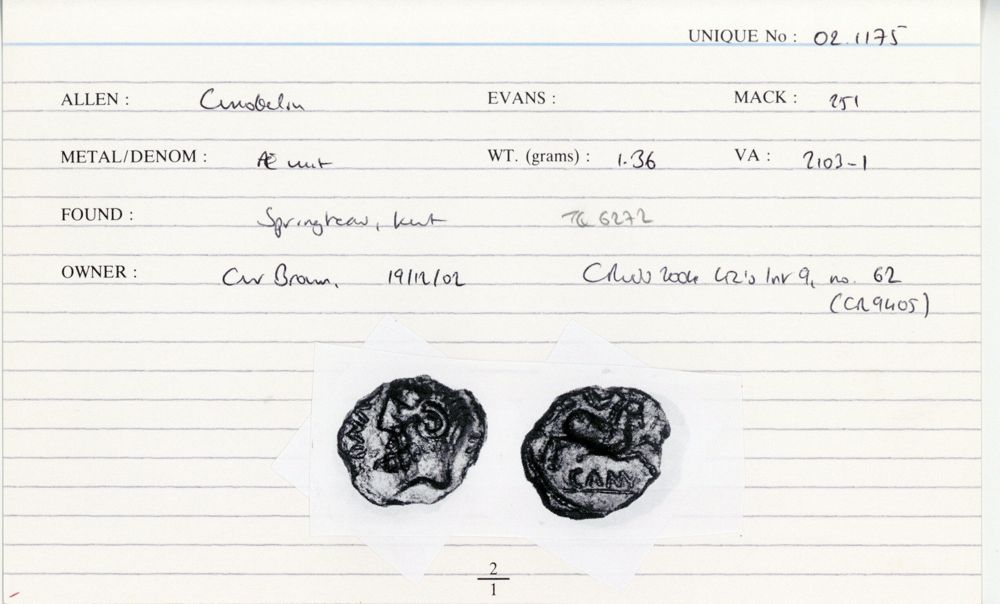 UNIQUE No : 02.1175
ALLEN : Cunobelin EVANS : MACK : 251
METAL/DENOM : Æ unit WT. (grams) : 1.36 VA : 2103-1
FOUND : Springhead, Kent TC 6272
OWNER : Chris Brown, 19/12/02 Chris Rudd liz's list 9, no. 62
(CR9405)
CAMV
2
1